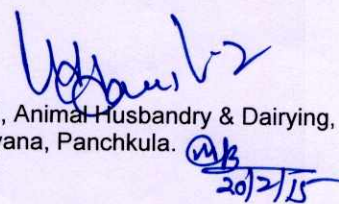 , Animal Husbandry & Dairying,
yana, Panchkula.
20/2/15